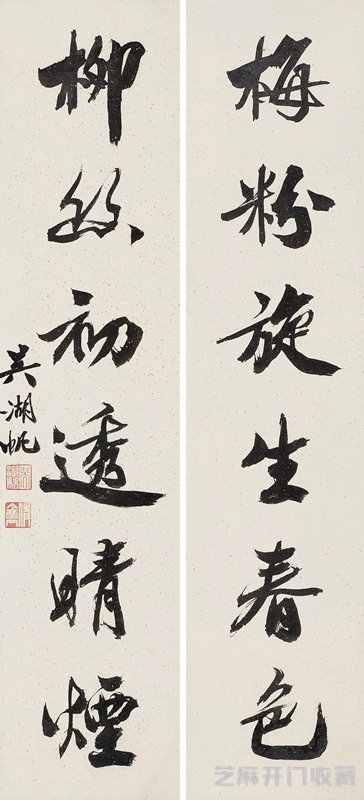 梅粉旋生春色
柳丝初透晴煙
吴湖帆
芝麻开门收藏